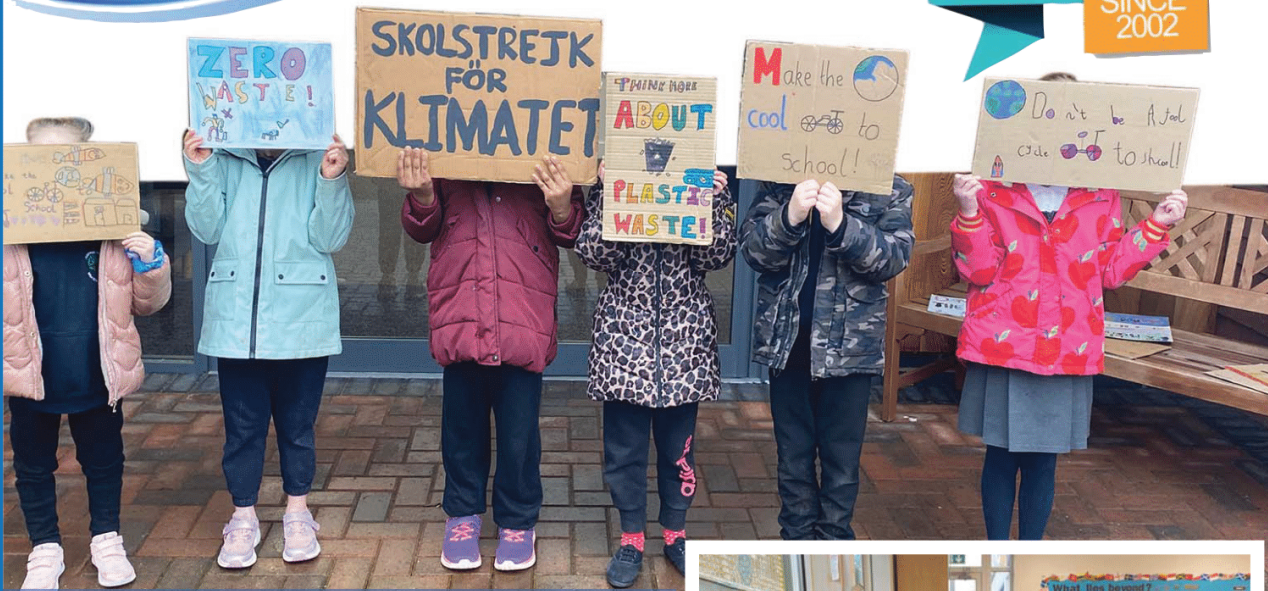 SINCE
2002
ZERO
WASTE!
SKOLSTREJK
FÖR
KLIMATET
THINK MORE
ABOUT
PLASTIC
WASTE!
Make the
cool to
school!
Don't be A fool
cycle to shcool!
the
School
What lies beyond?